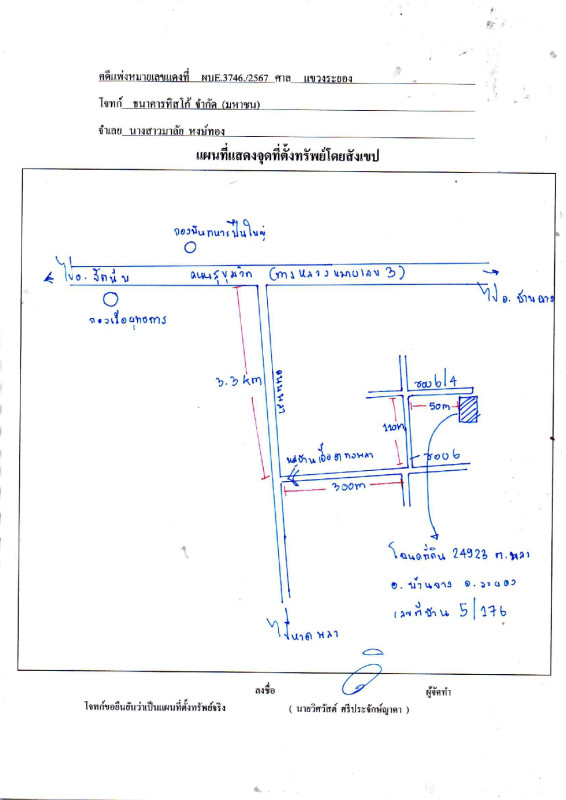 คดีแพ่งหมายเลขแดงที่ ผบE.3746./2567 ศาล แขวงระยอง
โจทก์ ธนาคารทิสโก้ จำกัด (มหาชน)
จำเลย นางสาวมาลัย หงษ์ทอง
แผนที่แสดงจุดที่ตั้งทรัพย์โดยสังเขป
กองพันทหารปืนใหญ่
ไป อ. สัตหีบ
ถนนสุขุมวิท (ทางหลวงหมายเลข 3)
ไป อ. บ้านฉาง
กองเรือยุทธการ
3.3 km
ถนนพลา
ซอย 6/4
50m
110m
ซอย 6
300m
โฉนดที่ดิน 24923 ต.พลา
อ. บ้านฉาง จ. ระยอง
เลขที่บ้าน 5/176
ไปหาดพลา
ลงชื่อ
ผู้จัดทำ
โจทก์ขอยืนยันว่าเป็นแผนที่ตั้งทรัพย์จริง
( นายวิศวัสต์ ศรีประจักษ์ญาดา )